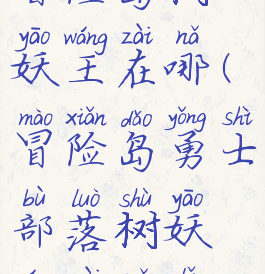 yāo wáng zài nǎ
妖王在哪(
mào xiǎn dǎo yǒng shì
冒险岛勇士
bù luò shù yāo
部落树妖